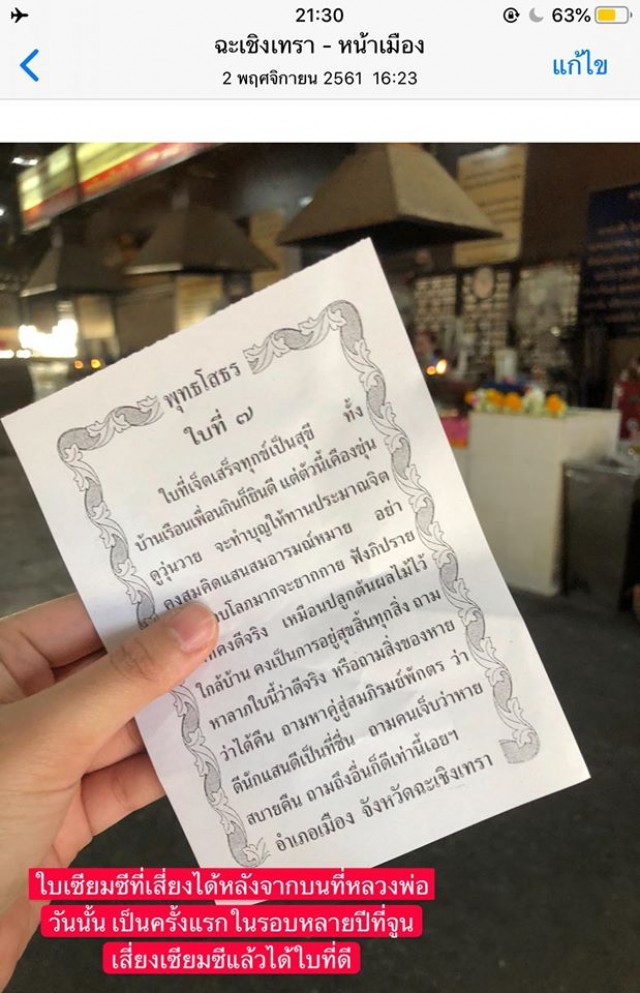 21:30
63%
ฉะเชิงเทรา - หน้าเมือง
2 พฤศจิกายน 2561 16:23
แก้ไข
พุทธโสธร
ใบที่ ๗
ใบที่เจ็ดเสร็จทุกข์เป็นสุขี ทั้ง
บ้านเรือนเพื่อนกินก็ยินดี แต่ตัวนี้เคืองขุ่น
ดูวุ่นวาย จะทำบุญให้ทานประมาณจิต
คงสมคิดแสนสมอารมณ์หมาย อย่า
บโลภมากจะยากกาย ฟังภิปราย
คงดีจริง เหมือนปลูกต้นผลไม้ไว้
ใกล้บ้าน คงเป็นการอยู่สุขสิ้นทุกสิ่ง ถาม
หาลาภใบนี้ว่าดีจริง หรือถามสิ่งของหาย
ว่าได้คืน ถามหาคู่สู่สมภิรมย์พักตร ว่า
ดีนักแสนดีเป็นที่ชื่น ถามคนเจ็บว่าหาย
สบายคืน ถามถึงอื่นก็ดีเท่านี้เอยฯ
อำเภอเมือง จังหวัดฉะเชิงเทรา
ใบเซียมซีที่เสี่ยงได้หลังจากบนที่หลวงพ่อ
วันนั้น เป็นครั้งแรกในรอบหลายปีที่จูน
เสี่ยงเซียมซีแล้วได้ใบที่ดี